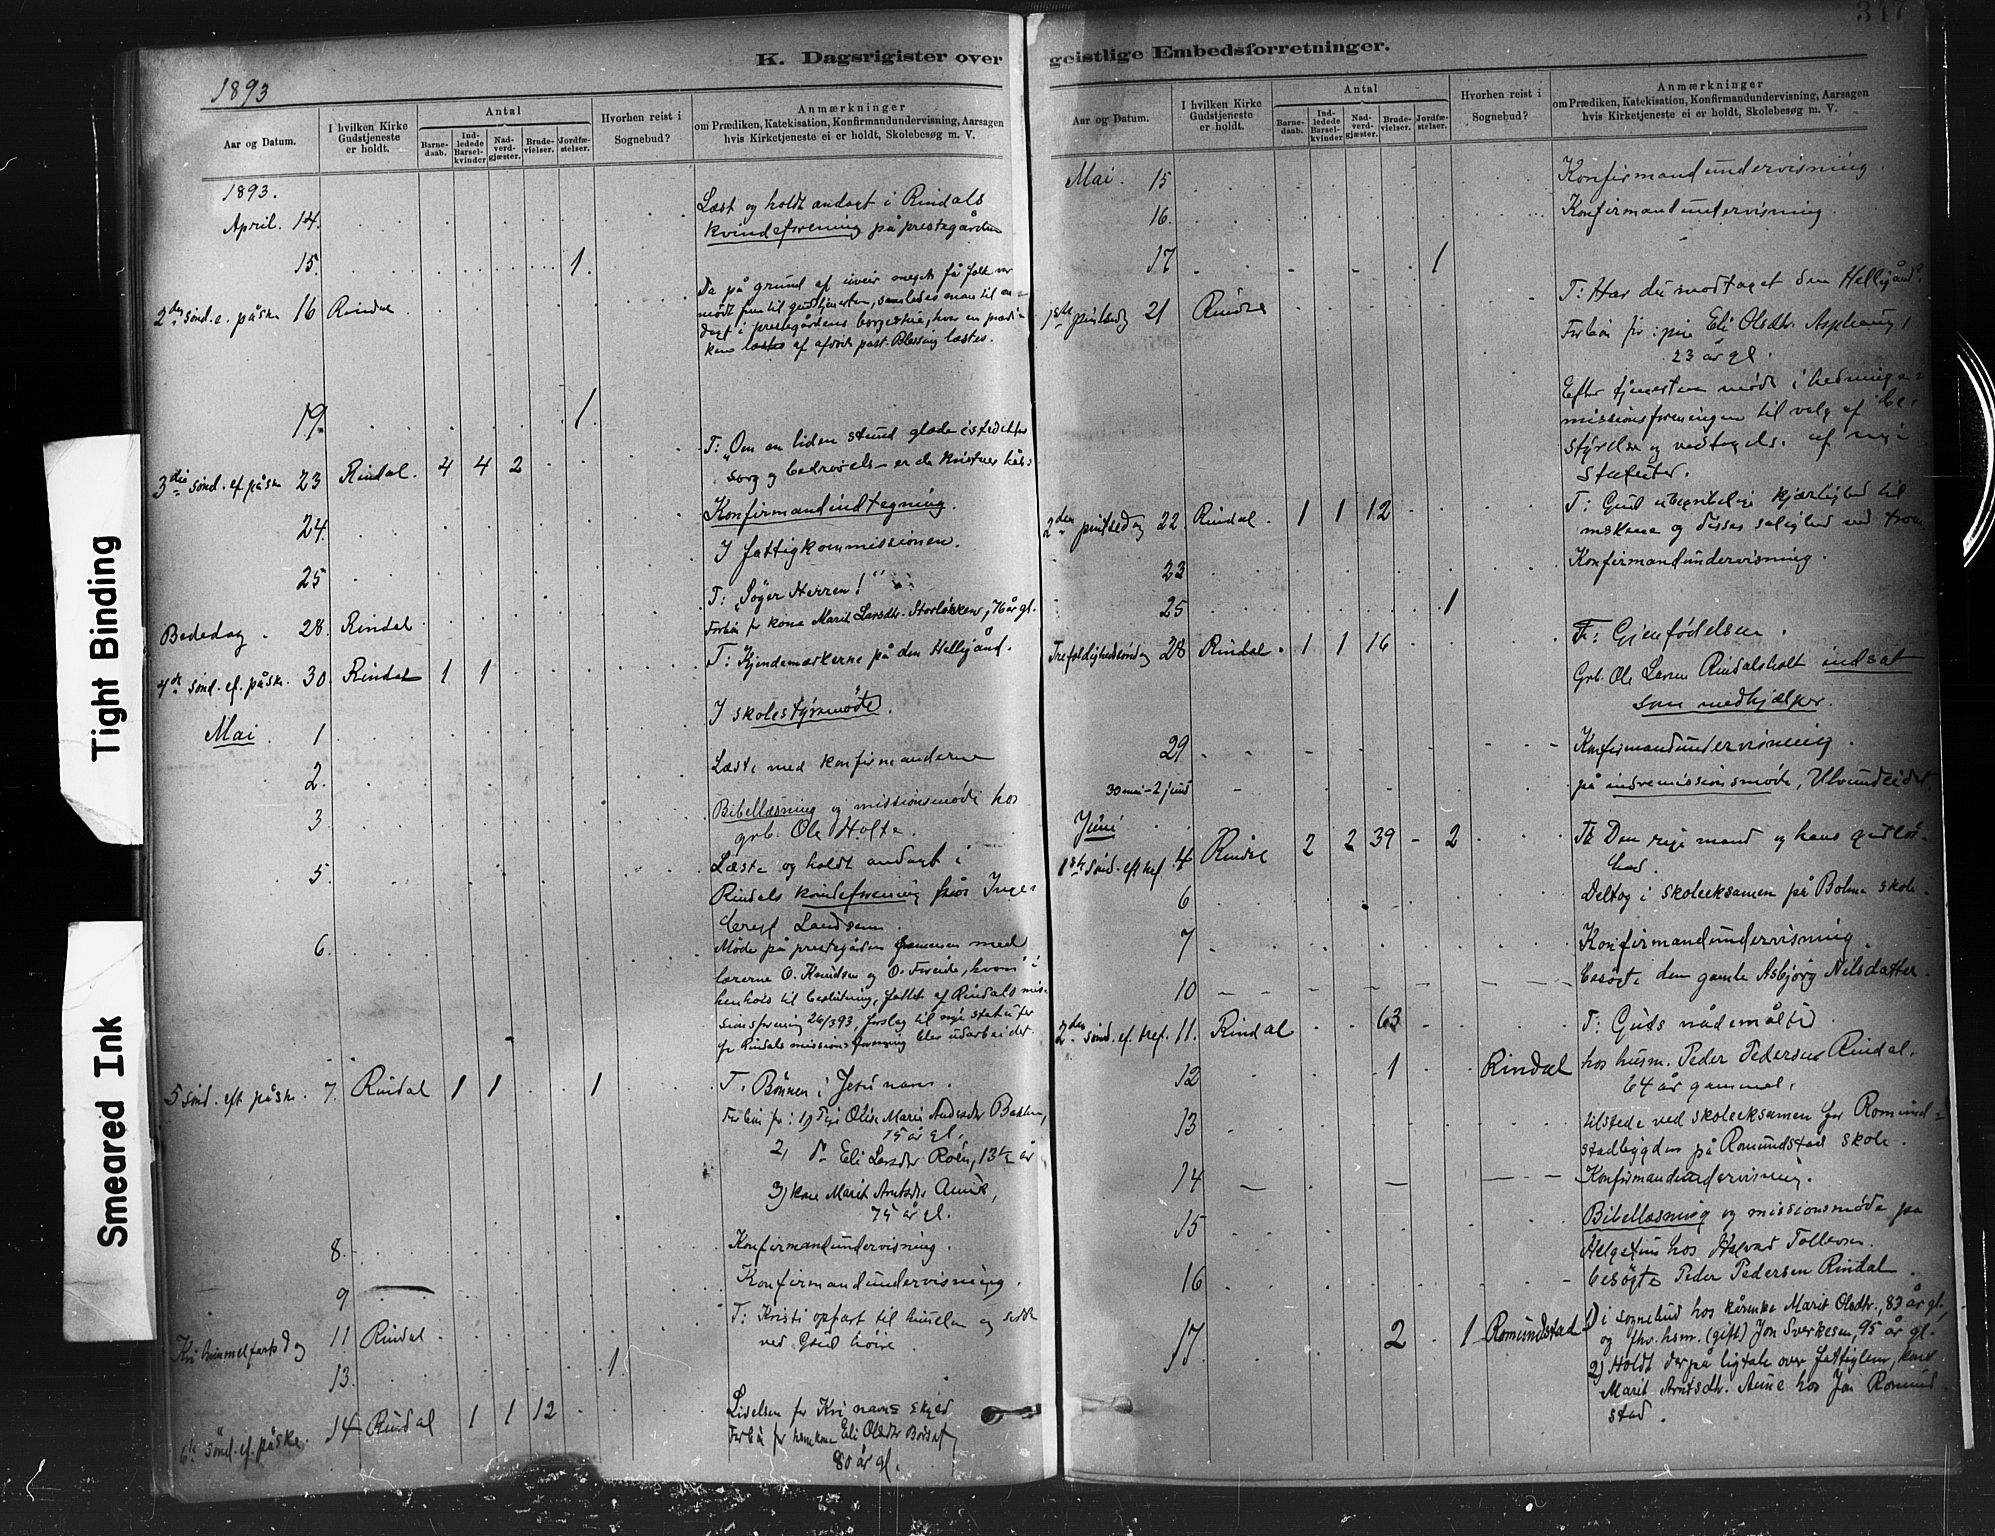 K. Dagsrigister over
1893
Aar og Datum.
I hvilken Kirke
Gudstjeneste
er holdt.
Antal
Barne-
daab.
Ind-
ledede
Barsel-
kvinder
Nad-
verd-
gjæster.
Brude-
vielser.
Jordfæ-
stelser.
Hvorhen reist i
Sognebud?
Anmærkninger
om Prædiken, Katekisation, Konfirmandundervisning, Aarsagen
hvis Kirketjeneste ei er holdt, Skolebesøg m. V.
1893.
April. 14. Læst og holdt andagt i Rindals
kvindeforening på prestegården
15. 1.
2den sønd. e. påske 16 Rindal Da på grund af uveir meget få folk var
mødt frem til gudstjenesten, samledes man til an-
dagt i prestegårdens borgestue, hvor en prædi-
ken læstes af afdøde past. Blessing læstes.
19. 1
3die sønd. ef. påske 23 Rindal. 4 4 2 T: "Om en liden stund glæde istedetfor
sorg og bedrøvelse er de kristnes håb
24. Konfirmandindtegning.
25 I fattigkommissionen.
Bededag. 28. Rindal T: "Søger Herren!"
Forbøn for kona Marit Larsdtr. Storløkken, 76 år gl.
4de sønd. ef. påske. 30. Rindal 1 1 T: Kjendemærkerne på den Helligånd.
Mai. 1 I skolestyrmøde.
2. Læste med konfirmanderne
3 Bibellæsning og missionsmøde hos
grb. Ole Holte.
5. Læste og holdt andagt i
Rindals kvindeforening hos Inge-
6. Møde på prestegården sammen med
lærerne O. Knudsen og O. Foreide, hvori i
henhold til beslutning, fattet af Rindals mis-
sionsforening 26/3 93, forslag til nye statuter
for Rindals missionsforening blev udarbeidet.
5 sønd. eft påske. 7. Rindal 1 1 1 T. Bønnen i Jesu navn.
Forbøn for: 1) Pige Marit Andersdtr Bakken,
15 år gl.
2, Eli Larsdtr Roen, 13½ år
3) kone Marit Arntsdtr Aune,
75 år gl.
8. Konfirmandundervisning.
9 Konfirmandundervisning.
Kri himmelfartsdag 11 Rindal T: Kristi opfart til himlen og sæde
ved Guds høire.
13. 1.
6te sønd. ef. påske. 14 Rindal 1 1 12 Lidelsen for Kri navns skyld
Forbøn for kone Eli Olsdtr
80 år gl.
geistlige Embedsforretninger.
347
Aar og Datum.
I hvilken Kirke
Gudstjeneste
er holdt.
Antal
Barne-
daab.
Ind-
ledede
Barsel-
kvinder
Nad-
verd-
gjæster.
Brude-
vielser.
Jordfæ-
stelser.
Hvorhen reist i
Sognebud?
Anmærkninger
om Prædiken, Katekisation, Konfirmandundervisning, Aarsagen
hvis Kirketjeneste ei er holdt, Skolebesøg m. V.
Mai. 15 Konfirmandundervisning.
16. Konfirmandundervisning.
17 1
1ste pintsedag 21 Rindal T: Har du modtaget den Helligånd?
Forbøn for: pige Eli Olsdtr. Asphaug,
23 år gl.
Efter tjenesten møde i hedninge-
missionsforeningen til valg af be-
styrelse og vedtagelse af nye
Statuter.
2den pintsedag 22. Rindal. 1 1 12 T: Guds ubegribelige kjærlighed til
mskene og disses salighed ved troen.
23 Konfirmandundervisning.
25 1
Trefoldighedssøndag 28 Rindal. 1 1 16 T: Gjenfødelsen.
Grb. Ole Larsen Rindalsholt indsat
som medhjælper.
29 Konfirmandundervisning.
30 mai - 2 juni på indremissionsmøde, Ulvundeidet.
Juni
1ste sønd. eft tref. 4 Rindal 2 2 39 - 2 T: Den rige mand og hans gudløs-
hed.
6 Deltog i skoleeksamen på Bolme skole.
7 Konfirmandundervisning.
10 besøgte den gamle Asbjørg Nilsdatter.
2den sønd. ef. tref. 11. Rindal 63 T: Guds nådemåltid
12 1 Rindal hos husm. Peder Pedersen Rindal.
64 år gammel.
13 tilstede ved skoleeksamen for Romund-
stadbygden på Romundstad skole.
14 Konfirmandundervisning.
15 Bibellæsning og missionsmøde på
Helgetun hos Halvard Tollevsen.
16 besøgte Peder Pedersen Rindal.
17. 2 1 Romundstad 1) i sognebud hos kårenke Marit Olsdtr., 83 år gl.,
og fhv. hsm. (gift) Jon Sverkesen, 95 år gl.
2) Holdt derpå ligtale over fattiglem, kone
Marit Arntsdtr. Aune hos Jon Romund-
stad.
Tight Binding
Smeared Ink